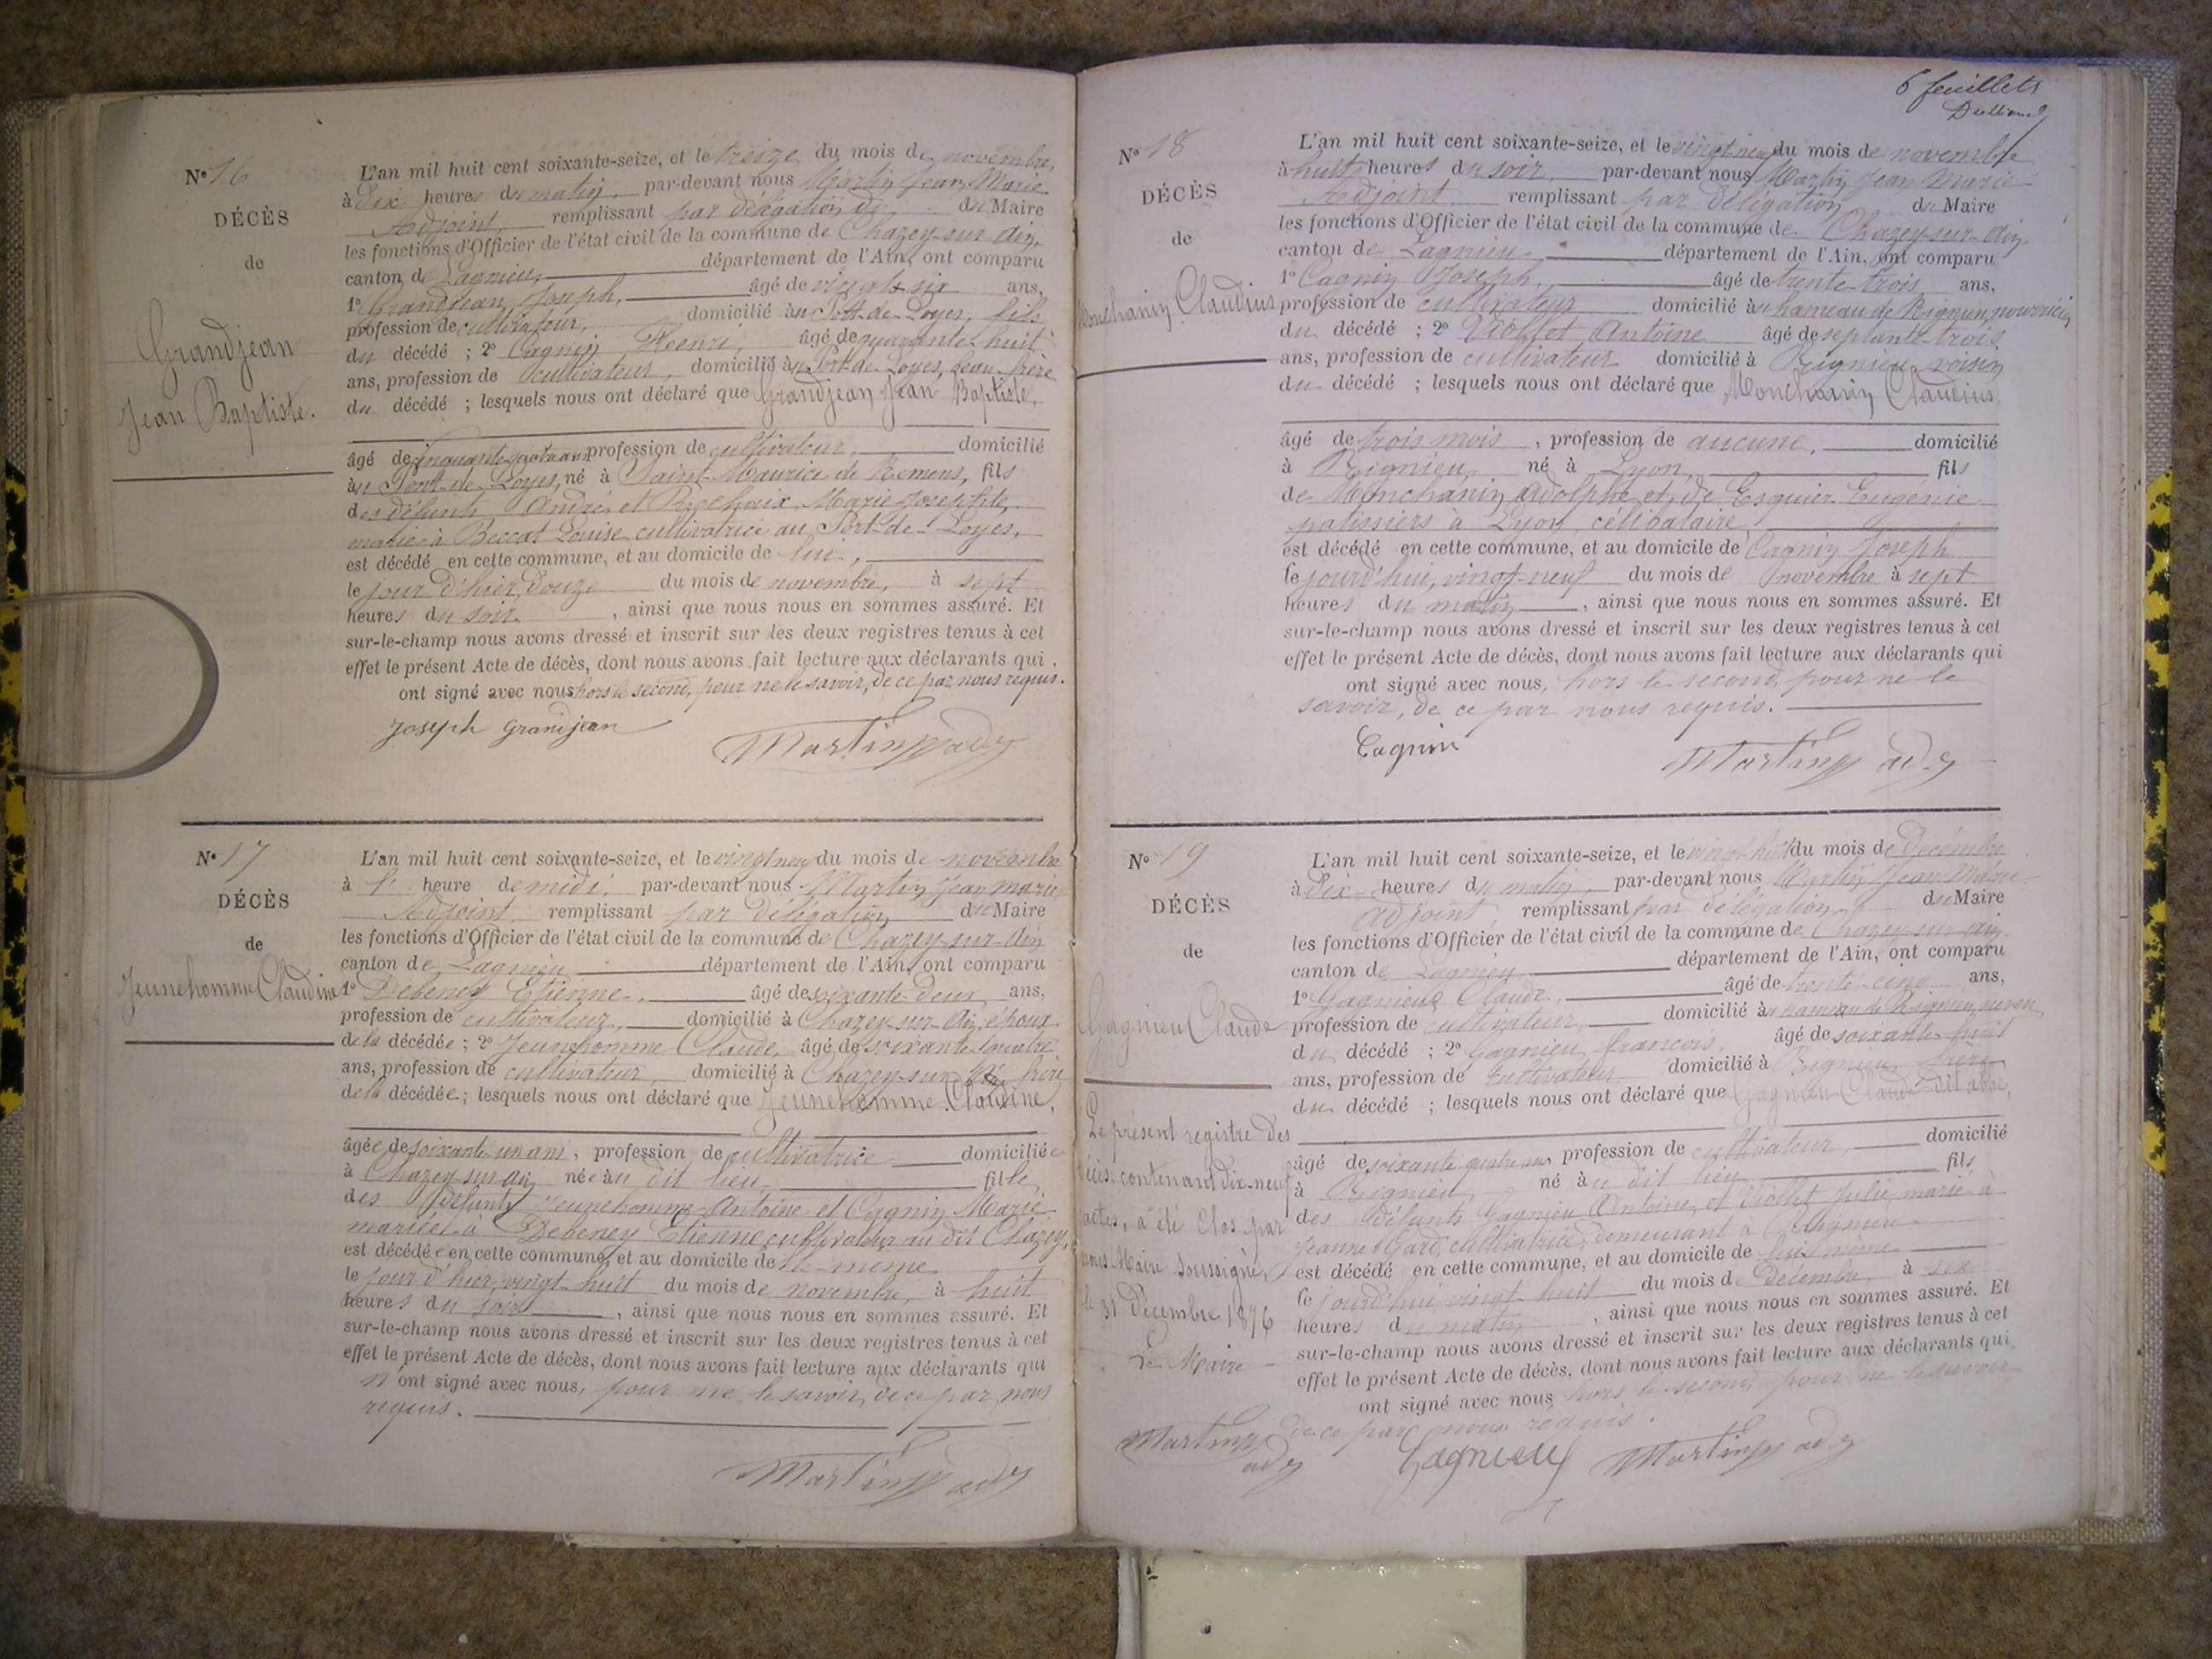 N° 16
DÉCÈS
de
Grandjean
Jean Baptiste.
L'an mil huit cent soixante-seize, et le treize du mois de novembre,
à Dix heures du matin, par-devant nous Martin Jean Marie
Adjoint, remplissant par délégation du Maire
les fonctions d'Officier de l'état civil de la commune de Chazey-sur-Ain,
canton de Lagnieu, département de l'Ain, ont comparu
1° Grandjean Joseph, âgé de vingt-six ans,
profession de cultivateur, domicilié au Port-de-Loyes, fils
du décédé ; 2° Cagnin Henri, âgé de quarante-huit
ans, profession de cultivateur, domicilié au Port-de-Loyes, beau-frère
du décédé ; lesquels nous ont déclaré que Grandjean Jean Baptiste,
âgé de cinquante-quatre ans profession de cultivateur, domicilié
au Port-de-Loyes, né à Saint Maurice de Remens, fils
des défunts André et Marie Josephte,
marié à Beccat Louise cultivatrice au Port-de-Loyes,
est décédé en cette commune, et au domicile de lui,
le jour d'hier, Douze du mois de novembre, à sept
heures du soir, ainsi que nous nous en sommes assuré. Et
sur-le-champ nous avons dressé et inscrit sur les deux registres tenus à cet
effet le présent Acte de décès, dont nous avons fait lecture aux déclarants qui
ont signé avec nous hors le second, pour ne le savoir, de ce par nous requis.
Joseph Grandjean Martin adj
N° 17
DÉCÈS
de
Jeunehomme Claudine
L'an mil huit cent soixante-seize, et le vingt neuf du mois de novembre
à 1 heure de midi, par-devant nous Martin Jean Marie
Adjoint remplissant par délégation du Maire
les fonctions d'Officier de l'état civil de la commune de Chazey-sur-Ain
canton de Lagnieu département de l'Ain, ont comparu
1° Debeney Etienne, âgé de soixante-deux ans,
profession de cultivateur, domicilié à Chazey-sur-Ain, époux
de la décédée ; 2° Jeunehomme Claude, âgé de soixante-quatre
ans, profession de cultivateur, domicilié à Chazey-sur-Ain frère
de la décédée ; lesquels nous ont déclaré que Jeunehomme Claudine,
âgée de soixante-un ans, profession de cultivatrice domiciliée
à Chazey-sur-Ain née au dit lieu fille
des défunts Jeunehomme Antoine et Cagnin Marie
mariée à Debeney Etienne cultivateur au dit Chazey,
est décédée en cette commune, et au domicile de même
le jour d'hier, vingt-huit du mois de novembre, à huit
heures du soir, ainsi que nous nous en sommes assuré. Et
sur-le-champ nous avons dressé et inscrit sur les deux registres tenus à cet
effet le présent Acte de décès, dont nous avons fait lecture aux déclarants qui
n'ont signé avec nous, pour ne le savoir, de ce par nous
requis.
Martin adj
6 feuillets
N° 18
DÉCÈS
de
Monchanin Claudius
L'an mil huit cent soixante-seize, et le vingt-neuf du mois de novembre
à huit heures du soir, par-devant nous Martin Jean Marie
Adjoint remplissant par délégation du Maire
les fonctions d'Officier de l'état civil de la commune de Chazey-sur-Ain,
canton de Lagnieu département de l'Ain, ont comparu
1° Cagnin Joseph, âgé de trente-trois ans,
profession de cultivateur domicilié au hameau de Rignieu, nourricier
du décédé ; 2° Viollet Antoine âgé de septante-trois
ans, profession de cultivateur domicilié à Rignieu voisin
du décédé ; lesquels nous ont déclaré que Monchanin Claudius,
âgé de trois mois, profession de aucune, domicilié
à Rignieu, né à Lyon, fils
de Monchanin Adolphe et de Esquier Eugénie
patissiers à Lyon célibataire
est décédé en cette commune, et au domicile de Cagnin Joseph
le jourd'hui, vingt-neuf du mois de novembre à sept
heures du matin, ainsi que nous nous en sommes assuré. Et
sur-le-champ nous avons dressé et inscrit sur les deux registres tenus à cet
effet le présent Acte de décès, dont nous avons fait lecture aux déclarants qui
ont signé avec nous, hors le second, pour ne le
savoir, de ce par nous requis.
Cagnin Martin adj
N° 19
DÉCÈS
de
Gagnieu Claude
L'an mil huit cent soixante-seize, et le vingt-huit du mois de Décembre
à Dix heures du matin, par-devant nous Martin Jean Marie
adjoint, remplissant par délégation du Maire
les fonctions d'Officier de l'état civil de la commune de Chazey-sur-Ain
canton de Lagnieu département de l'Ain, ont comparu
1° Gagnieu Claude, âgé de trente-cinq ans,
profession de cultivateur, domicilié au hameau de Rignieu, neveu
du décédé ; 2° Gagnieu françois, âgé de soixante-huit
ans, profession de cultivateur domicilié à Rignieu frère
du décédé ; lesquels nous ont déclaré que Gagnieu Claude dit abbé,
âgé de soixante quatre ans profession de cultivateur, domicilié
à Rignieu, né au dit lieu fils
des défunts Gagnieu Antoine et Viollet Julie marié à
Jeanne Gard, cultivatrice, demeurant à Rignieu
est décédé en cette commune, et au domicile de lui même
le jourd'hui vingt-huit du mois de Décembre, à six
heures du matin, ainsi que nous nous en sommes assuré. Et
sur-le-champ nous avons dressé et inscrit sur les deux registres tenus à cet
effet le présent Acte de décès, dont nous avons fait lecture aux déclarants qui
ont signé avec nous hors le second, pour ne le savoir
de ce par nous requis.
Gagnieu Martin adj
Le présent registre des
décès contenant dix-neuf
actes, a été clos par
nous Maire soussigné,
le 31 Décembre 1876
Le Maire
Martin
adj